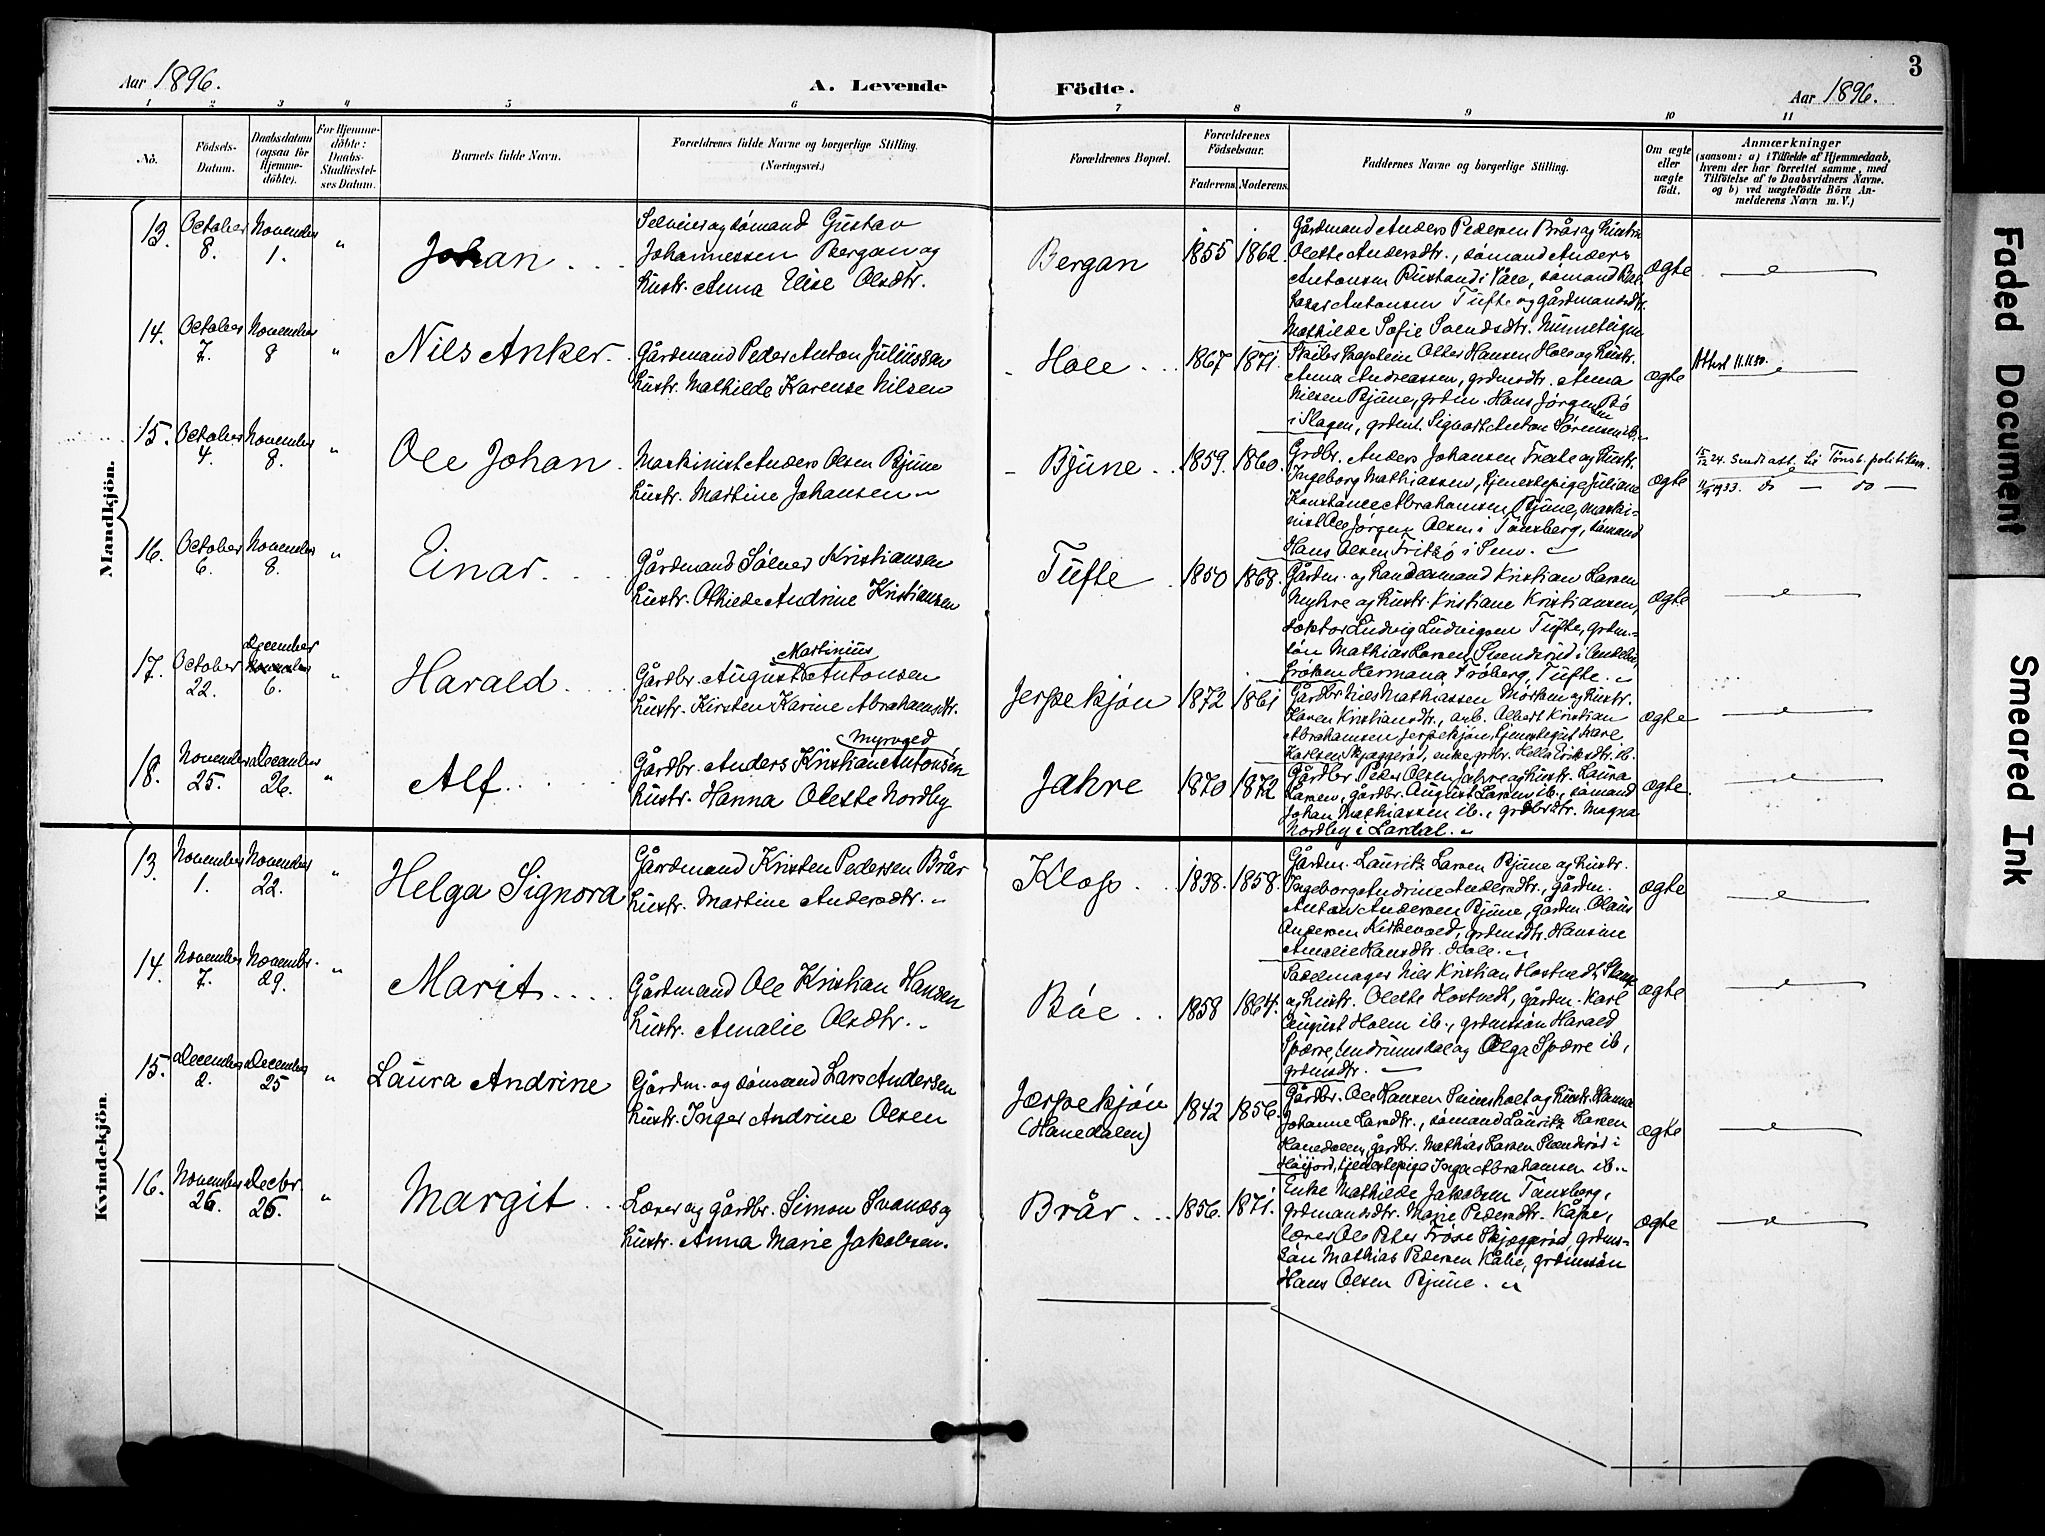 3
Aar 1896.
A. Levende Födte.
Aar 1896.
1 2 3 4 5 6 7 8 9 10 11
No.
Födsels-Datum.
Daabsdatum (ogsaa for Hjemme-döbte).
For Hjemme-döbte: Daabs-Stadfæstel-ses Datum.
Barnets fulde Navn.
Forældrenes fulde Navne og borgerlige Stilling.
(Næringsvei.)
Forældrenes Bopæl.
Forældrenes Födselsaar.
Faderens. Moderens.
Faddernes Navne og borgerlige Stilling.
Om ægte eller uægte födt.
Anmærkninger
(saasom: a) i Tilfælde af Hjemmedaab, hvem der har forrettet samme, med Tilföielse af to Daabsvidners Navne. og b) ved uægtefödte Börn An-melderens Navn m. V.)
Mandkjön.
13. October 8. November 1. "
Johan
Selveier og sømand Gustav
Johannessen Bergan og
hustr. Anna Elise Olsdtr.
Bergan 1855 1862.
Gårdmand Anders Pedersen Brår og hustru
Olette Andersdtr., sømand Anders
Antonsen Rustand i Våle, sømand
Antonsen Tufte og gårdmandsdtr.
Mathilde Sofie Svendsdtr.
ægte
14. October 7. November 8 "
Nils Anker
Gårdmand Peder Anton Juliussen
hustr. Mathilde Karense Nilsen
Hole 1867 1871.
Skibskaptein Oller Hansen Hole og hustr.
Anna Andreassen, grdmsdtr. Anna
Nilsen Bjune, grdm. Hans Jørgensen Bø
i Slagen, grdmt. Sigvart Anton Sørensen ib.
ægte
Attest 11.11.50.
15. October 4. November 8. "
Ole Johan
Maskinist Anders Olsen Bjune
hustr. Martine Johansen
Bjune 1859. 1860.
Grdbr. Anders Johansen Freste og hustr.
Ingeborg Mathiassen, tjenestepige Juliane
Konstance Abrahamsen Bjune, maski-
nist Ole Jørgen Olsen i Tønsberg, sømand
Hans Olsen Fritzø i Sem.
ægte
24. Sendt att. til Tønsb. politikam.
1933. do — do —
16. October 6. November 8. "
Einar
Gårdmand Sølver Kristiansen
hustr. Othilde Andrine Kristiansen
Tufte 1850 1868.
Gårdm. og landsmand Kristian Larsen
Myhre og hustr. Kristiane Kristiansen,
doktor Ludvig Ludvigsen Tufte, grdm.-
søn Mathias Larsen Slenderød i Andebu,
frøken Hermana Frøberg, Tufte.
ægte
17. October 22. December 6. "
Harald
Martinius
Gårdbr. August Antonsen
hustr. Kirsten Karine Abrahamsdtr.
Jerpekjøn 1872 1861
Gårdbr. Nils Mathiassen Mørken og hustr.
Karen Kristiansdtr., arb. Albert Kristian
Abrahamsen Jerpekjøn, tjenestegut Kare
Karlsen Skjaggerød, enke grbr. Helle Eriksdtr. ib.
ægte
18. November 25. December 26. "
Alf
Myrvged
Gårdbr. Anders Kristian Antonsen
hustr. Hanna Olette Nordby
Jahre 1870 1872
Gårdbr. Peder Olsen Jahre og hustr. Laura
Larsen, gårdbr. August Larsen ib., sømand
Johan Mathiassen ib., grdbrdtr. Magna
Nordby i Lardal.
ægte.
Kvindekjön.
13. November 1. November 22. "
Helga Signora
Gårdmand Kristen Pedersen Brår
hustr. Martine Andersdtr.
Klop 1838. 1858.
Gårdm. Lauritz Larsen Bjune og hustr.
Ingeborg Andrine Andersdtr., gårdm.
Anton Andersen Bjune, gårdm. Olaus
Andersen Kirkevold, grdmsdtr. Hansine
Amalie Hansdtr. Hole.
ægte
14. November 7. Novembr. 29. "
Marit
Gårdmand Ole Kristian Hansen
hustr. Amalie Olsdtr.
Böe 1858 1864.
Sadelmager Nils Kristian Hostvedt,
og hustr. Olette Hostvedt, gårdm. Karl
August Holm ib., grdmssøn Harald
Sperre, Undrumsdal og Olga Sperre ib.,
grdmsdtr.
ægte
15. December 2. December 25 "
Laura Andrine
Gårdm. og sømand Lars Andersen
hustr. Inger Andrine Olsen
Jerpekjøn
(Hanedalen)
1842 1856.
Gårdbr. Ole Hansen Suimsholt og hustr. Hanna
Johanne Larsdtr., sømand Lauritz Larsen
Hanedalen, gårdbr. Mathias Larsen Slenderød i
Høijord, tjenestepige Inga Abrahamsen ib.
ægte
16. November 26. Decbr. 26. "
Margit
Lærer og gårdbr. Simon Svanes og
hustr. Anna Marie Jakobsen.
Brår 1856. 1871.
Enke Mathilde Jakobsen Tønsberg,
grdmandsdtr. Marie Pedersdtr. Kåpe,
lærer Ole Peter Frøse Skjeggerød, grdms-
søn Mathias Pedersen Kåpe, grdmssøn
Hans Olsen Bjune.
ægte
Faded Document
Smeared Ink